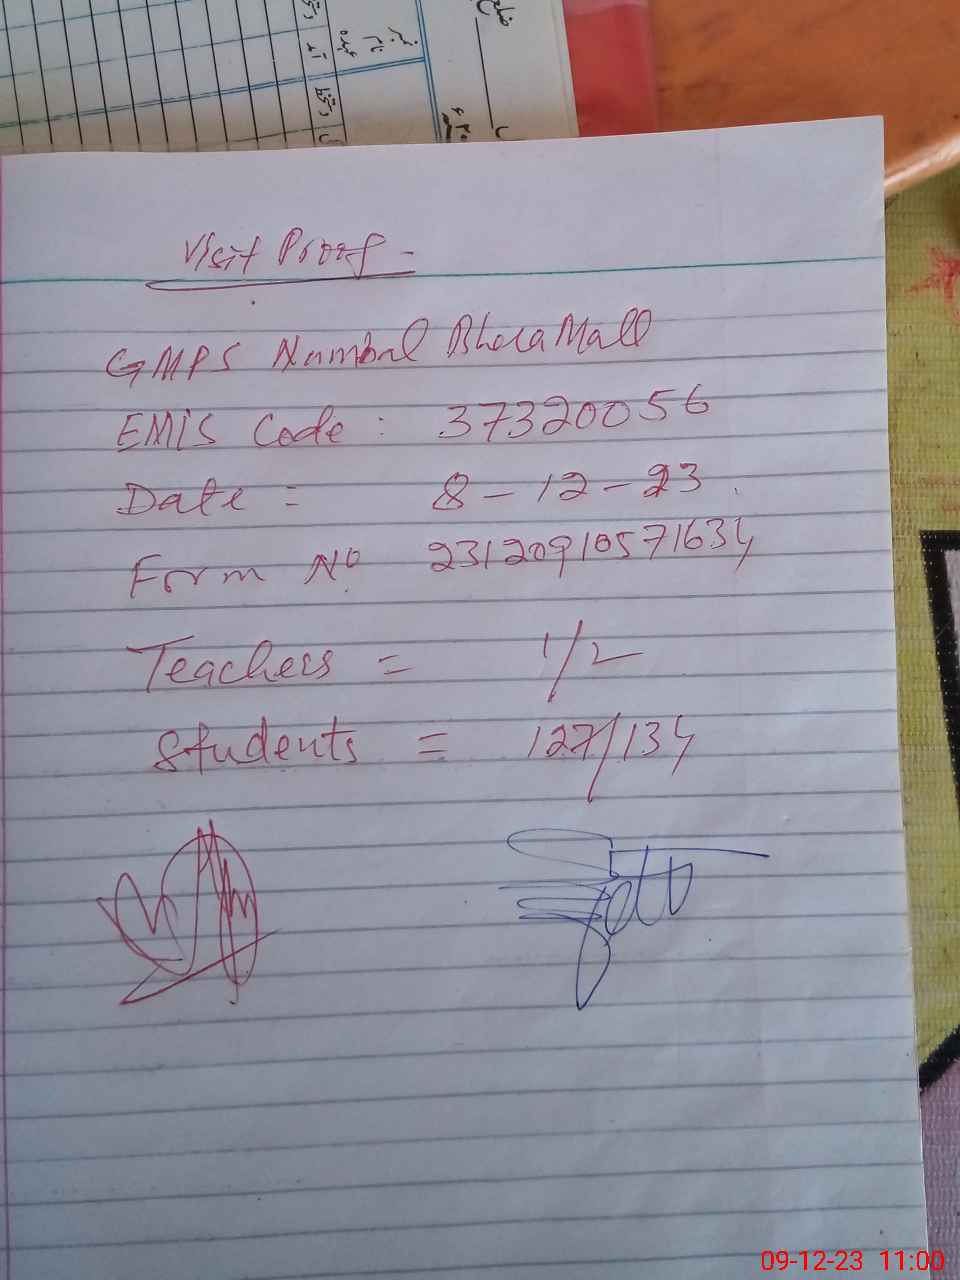 ضلع
نمبر
نام
عہدہ
آمد
دستخط
Visit Proof -
GMPS Numbal BhoraMall
EMIS Code : 37320056
Date = 8 - 12 - 23 .
Form No 23120910571634
Teachers = 1/2
Students = 127/134
09-12-23 11:00